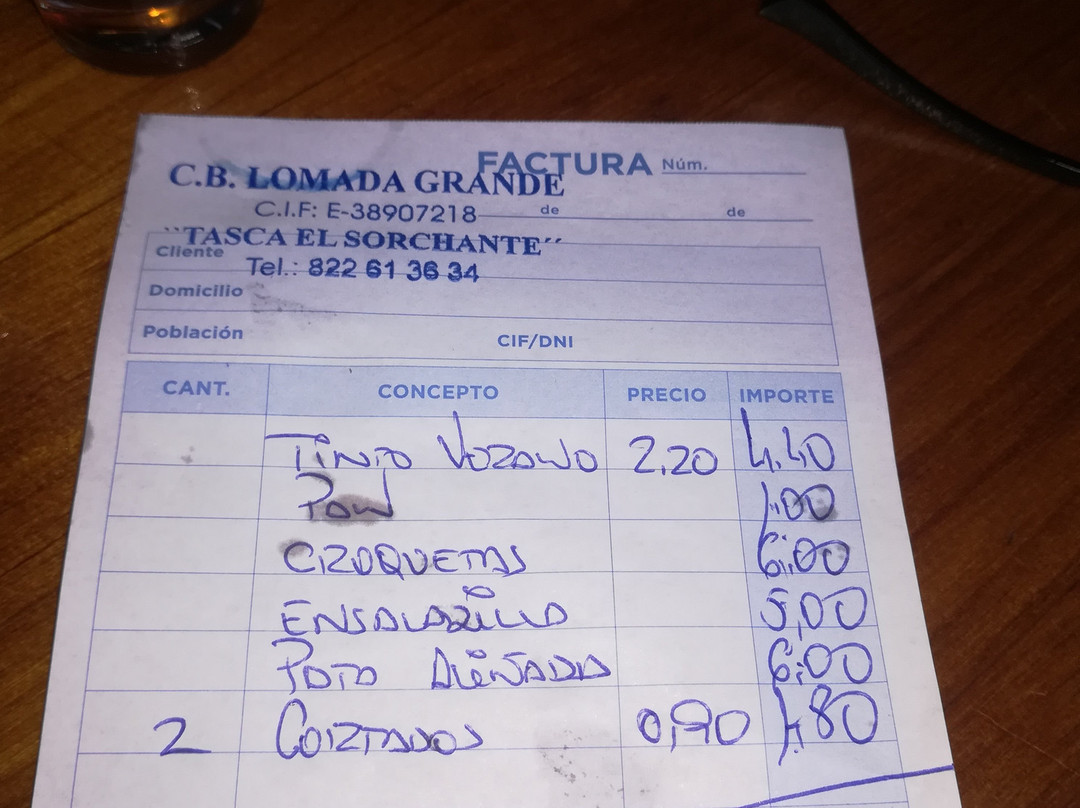 FACTURA Núm.
C.B. LOMADA GRANDE
C.I.F: E-38907218 de de
"TASCA EL SORCHANTE"
Cliente
Tel.: 822 61 36 34
Domicilio
Población CIF/DNI
CANT. CONCEPTO PRECIO IMPORTE
TINTO VERANO 2,20 4,40
PAN 1,00
CROQUETAS 6,00
ENSALADILLA 5,00
PATA ALIÑADA 6,00
2 CORTADOS 0,90 1,80